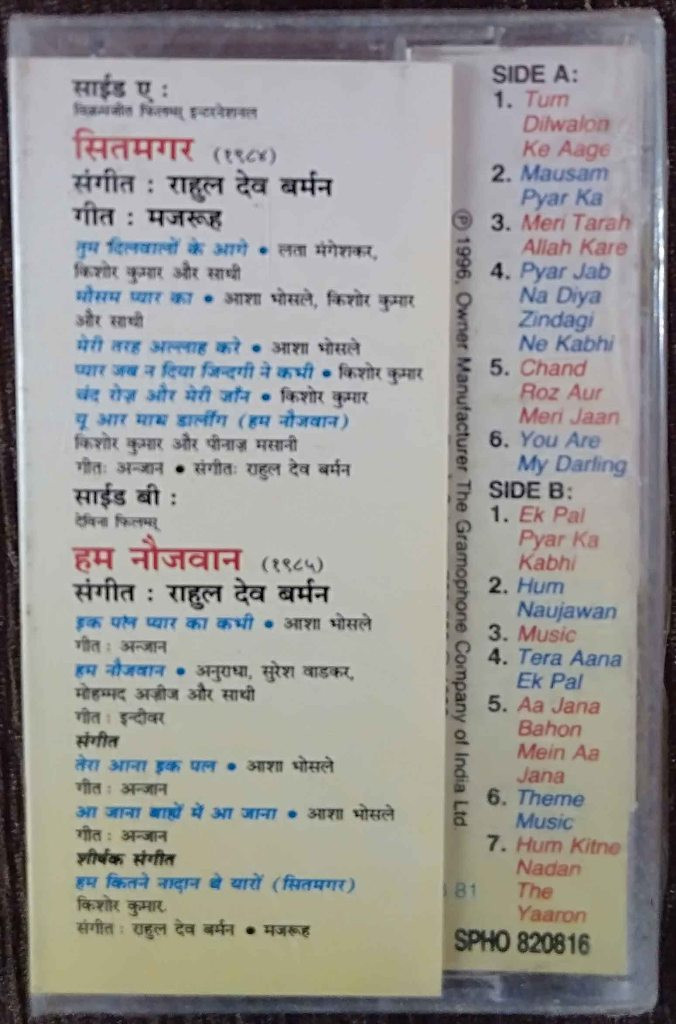 साईड ए :
विक्रमजीत फिल्मस् इन्टरनेशनल
सितमगर (१९८४)
संगीत : राहुल देव बर्मन
गीत : मजरूह
तुम दिलवालों के आगे • लता मंगेशकर,
किशोर कुमार और साथी
मौसम प्यार का • आशा भोसले, किशोर कुमार
और साथी
मेरी तरह अल्लाह करे • आशा भोसले
प्यार जब न दिया जिन्दगी ने कभी • किशोर कुमार
चंद रोज़ और मेरी जाँन • किशोर कुमार
यू आर माय डार्लींग (हम नौजवान)
किशोर कुमार और पीनाज़ मसानी
गीतः अन्जान • संगीतः राहुल देव बर्मन
साईड बी :
देविना फिल्मस्
हम नौजवान (१९८५)
संगीत : राहुल देव बर्मन
इक पल प्यार का कभी • आशा भोसले
गीत : अन्जान
हम नौजवान • अनुराधा, सुरेश वाडकर,
मोहम्मद अज़ीज और साथी
गीत : इन्दीवर
संगीत
तेरा आना इक पल • आशा भोसले
गीत : अन्जान
आ जाना बाहों में आ जाना • आशा भोसले
गीत : अन्जान
शीर्षक संगीत
हम कितने नादान थे यारों (सितमगर)
किशोर कुमार
संगीत : राहुल देव बर्मन • मजरूह
℗ 1996, Owner Manufacturer The Gramophone Company of India Ltd
81
SIDE A:
1. Tum
Dilwalon
Ke Aage
2. Mausam
Pyar Ka
3. Meri Tarah
Allah Kare
4. Pyar Jab
Na Diya
Zindagi
Ne Kabhi
5. Chand
Roz Aur
Meri Jaan
6. You Are
My Darling
SIDE B:
1. Ek Pal
Pyar Ka
Kabhi
2. Hum
Naujawan
3. Music
4. Tera Aana
Ek Pal
5. Aa Jana
Bahon
Mein Aa
Jana
6. Theme
Music
7. Hum Kitne
Nadan
The
Yaaron
SPHO 820816